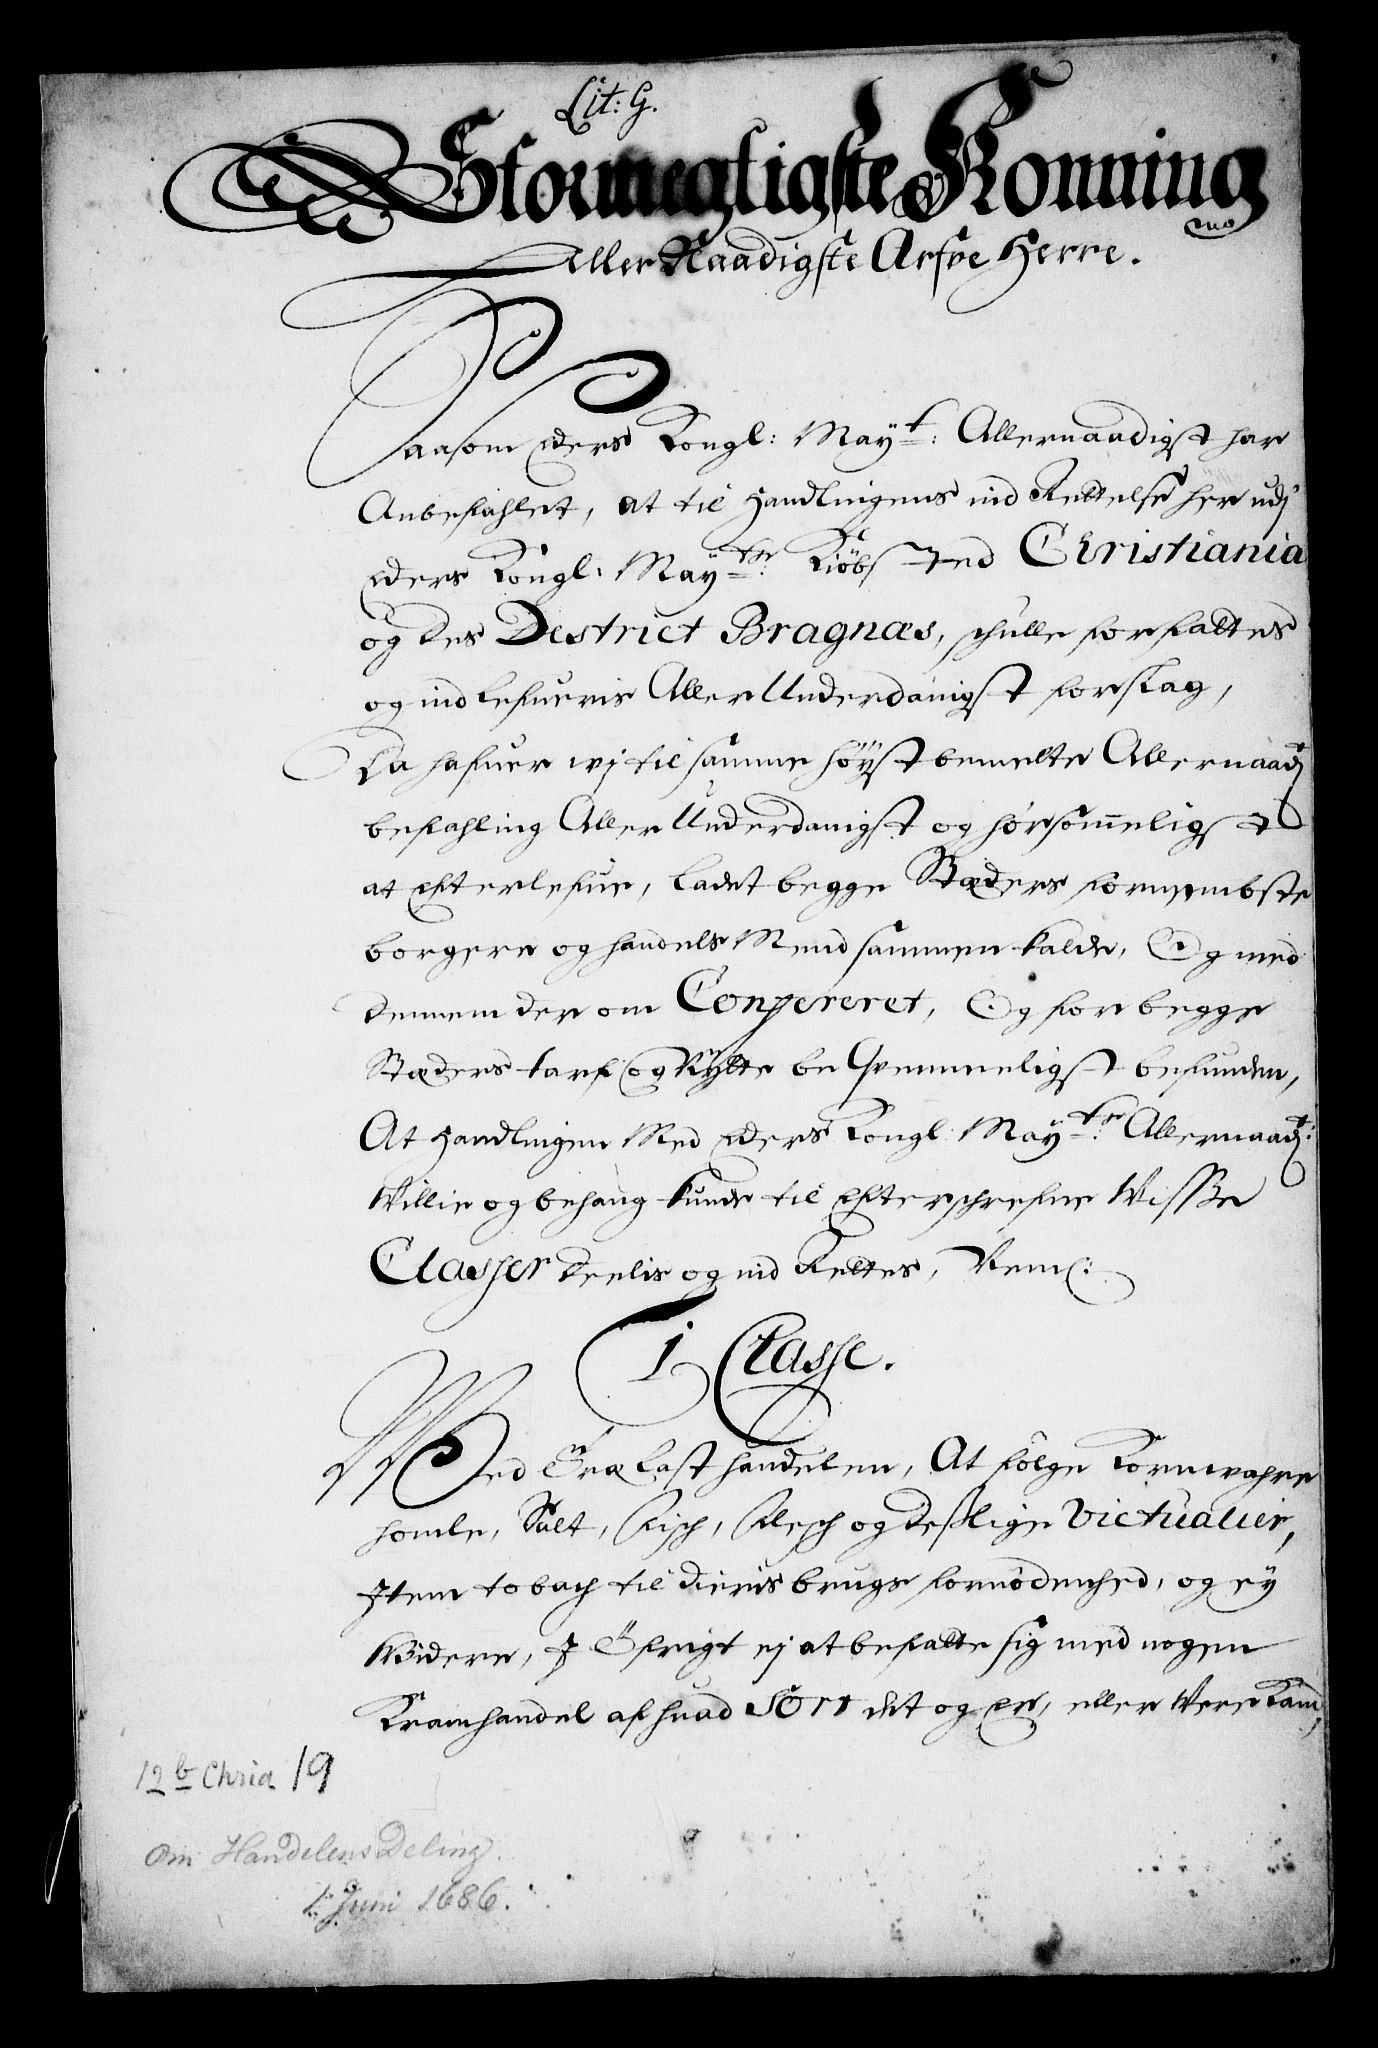 Lit: G.
Stormegtigste Konning
Aller Naadigste Arfve Herre.
Saasom Eders Kongl: Mayt: Allernaadigst har
Anbefahlet, at til Handlingens ind Rettelse her udj
Eders Kongl: Mayts: Kiöbsted Christiania
og des Destrict Bragnæs, schulle forfattes
og indlefueris Aller Underdanigst forslag,
Da hafuer wj til samme höyst bemelte Allernaad:
befahling Aller Underdanigst og hörsommeligst
at Efterlefue, ladet begge Stæders fornembste
borgere og handels Mend sammen kalde, Og med
dennem der om Confereret, Og for begge
Stæders tarf og Nytte beqvemmeligst befunden,
At Handlingen Med Eders Kongl: Mayts: Allernaad:
Villie og behaug kunde til Efterschrefne Visse
Classer deelis og ind Rettes, Neml:
1 Classe.
Med Træ last handelen, At fölge Kornwahre
homle, Salt, Fisch, Flesch og deslige Victualier,
Item tobach til dieris brugs fornödenhed, og ey
Videre, I Öfrigt ej at befatte sig med nogen
Kramhandel af huad Sort det og er, eller Vere Kand,
12 b Chria 19
Om Handelens Deling.
1. Juni 1686.